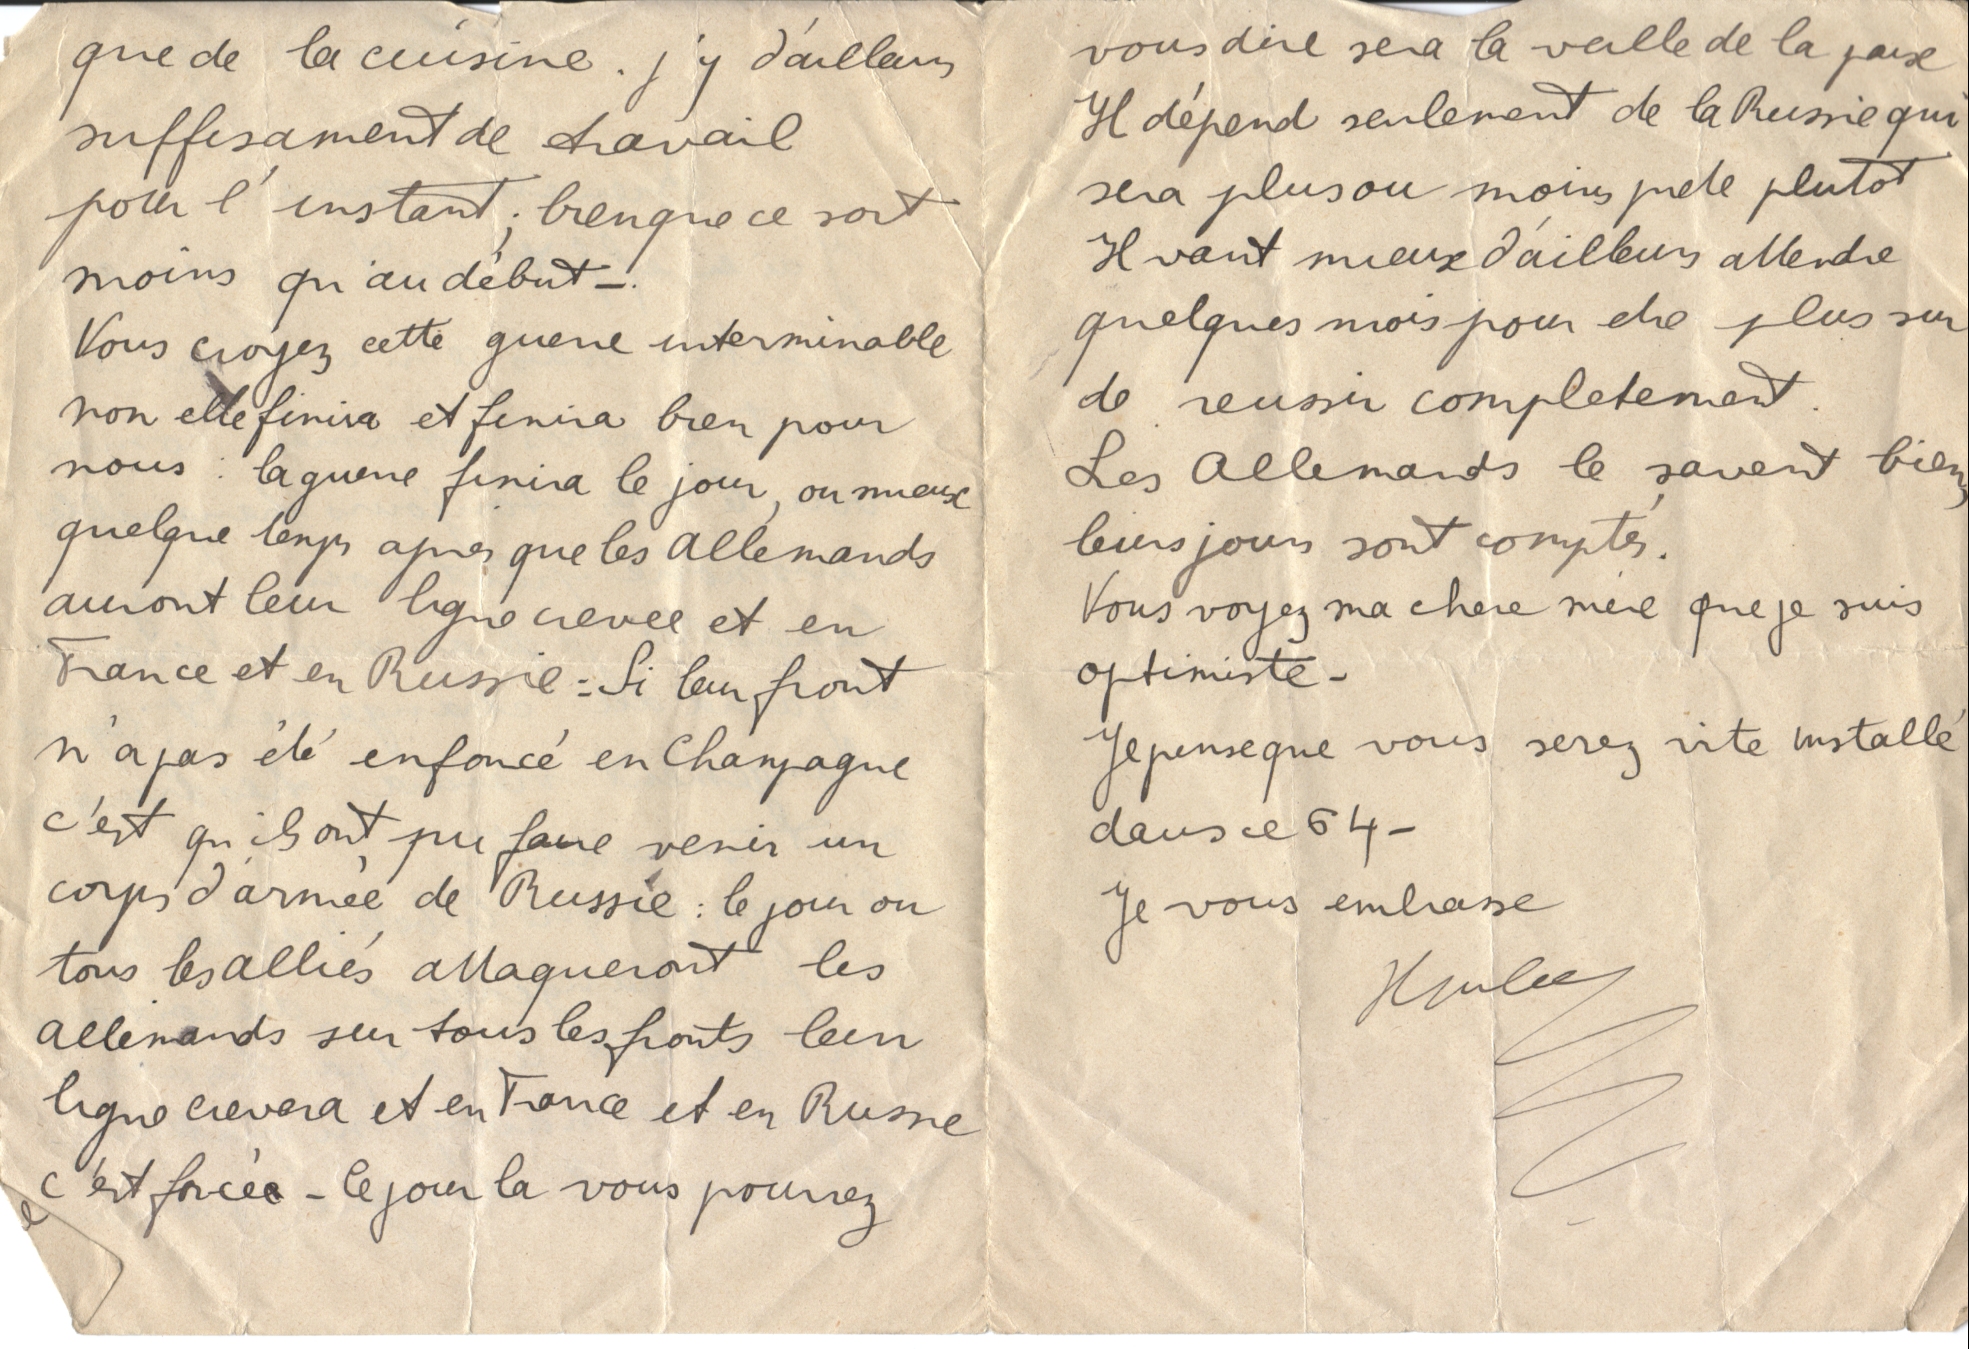 que de la cuisine. j'y d'ailleurs
suffisament de travail
pour l'instant; bien que ce soit
moins qu'au début -.
Vous croyez cette guerre interminable
non elle finira et finira bien pour
nous : la guerre finira le jour, ou mieux
quelque temps apres que les Allemands
auront leur ligne crevée et en
France et en Russie = Si leur front
n'a pas été enfoncé en Champagne
c'est qu'ils ont pu faire venir un
corps d'armée de Russie : le jour ou
tous les alliés attaqueront les
allemands sur tous les fronts leur
ligne crevera et en France et en Russie
c'est forcée - le jour la vous pourrez
vous dire sera la veille de la paix
Il dépend seulement de la Russie qui
sera plus ou moins prete plutot
Il vaut mieux d'ailleurs attendre
quelques mois pour etre plus sur
de reussir completement.
Les Allemands le savent bien,
leurs jours sont comptés.
Vous voyez ma chere mère que je suis
optimiste -
Je pense que vous serez vite installé
dans ce 64 -
Je vous embrasse